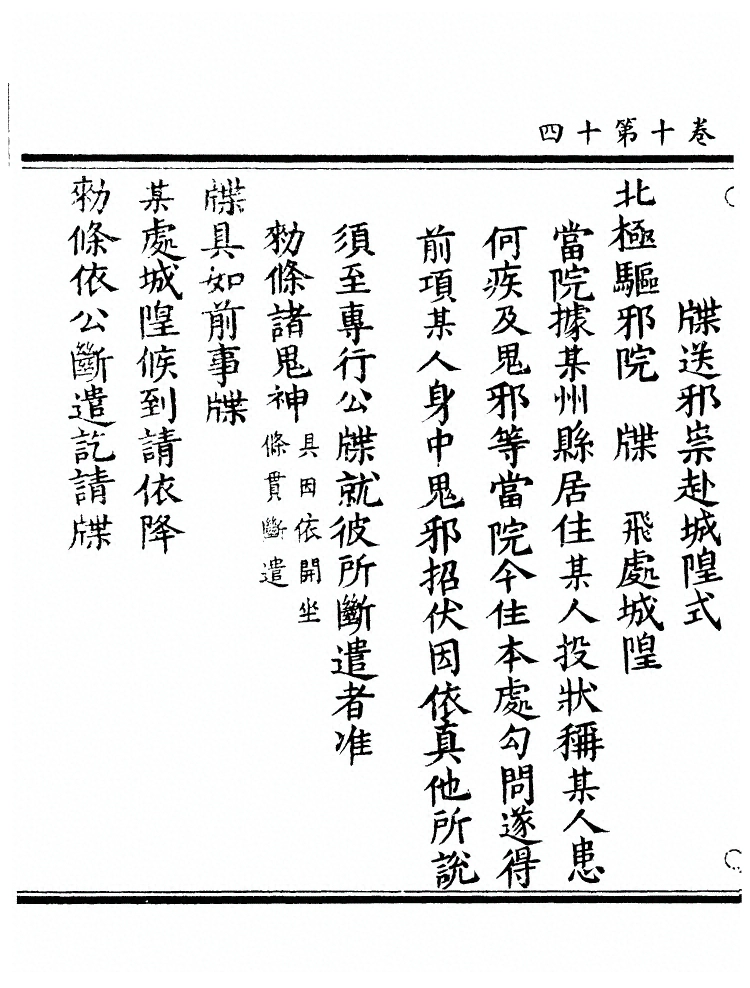 卷十第十四
牒送邪祟赴城隍式
北極驅邪院　牒　飛處城隍
當院據某州縣居住某人投狀稱某人患
何疾及鬼邪等當院今住本處勾問遂得
前項某人身中鬼邪招伏因依真他所說
須至專行公牒就彼所斷遣者准
勑條諸鬼神具因依開坐條貫斷遣
牒具如前事牒
某處城隍候到請依降
勑條依公斷遣訖請牒